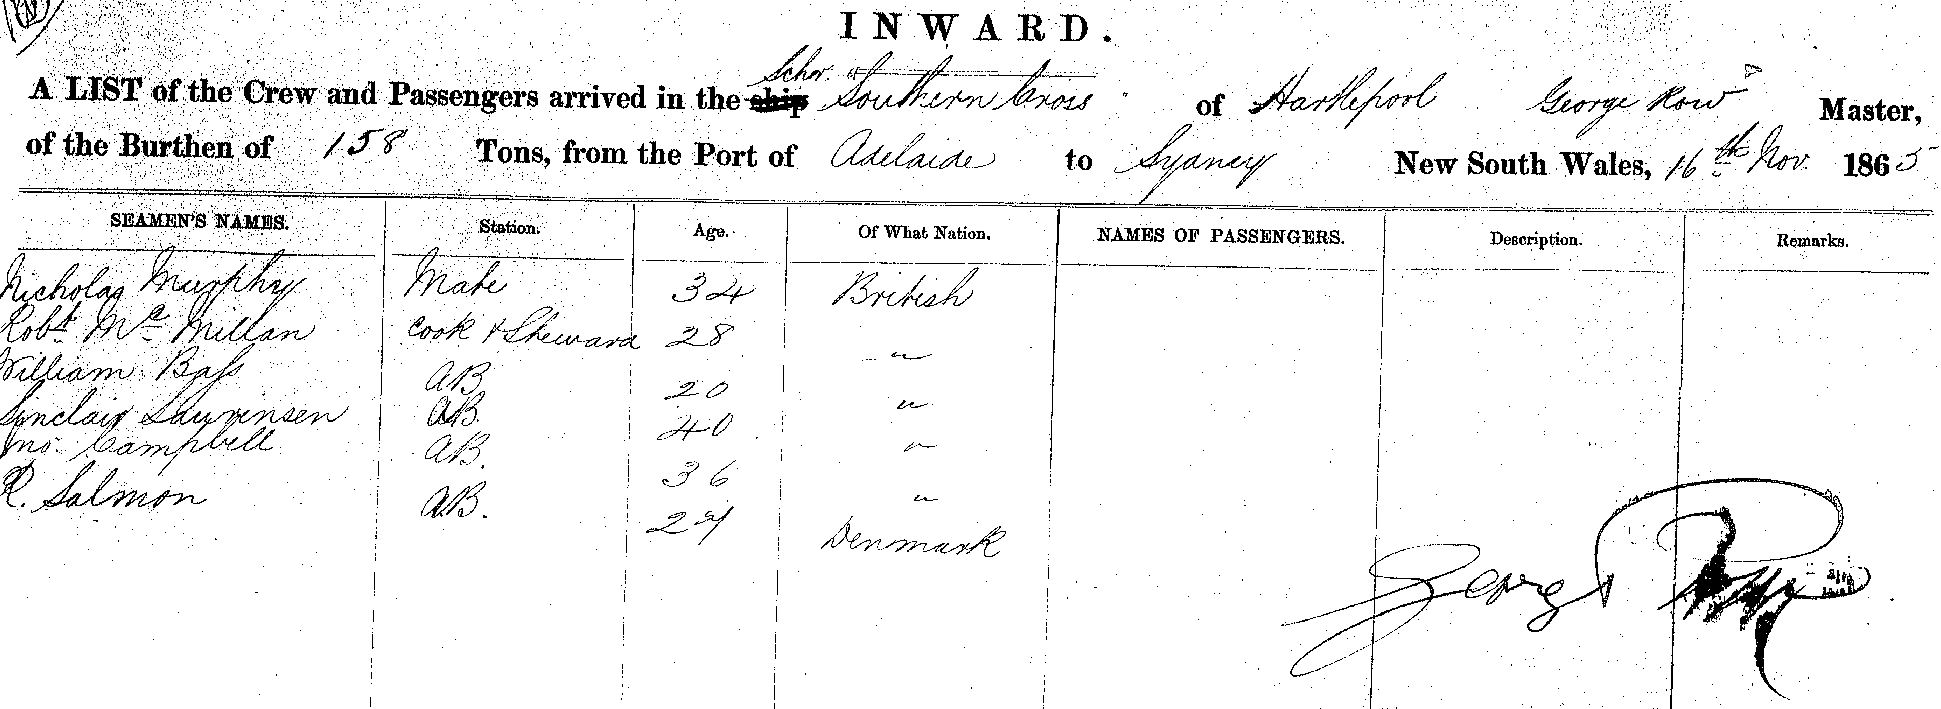 INWARD.
A LIST of the Crew and Passengers arrived in the ship Schor. Southern Cross of Hartlepool George Row Master,
of the Burthen of 158 Tons, from the Port of Adelaide to Sydney New South Wales, 16th Nov. 1865
SEAMEN'S NAMES. Station. Age. Of What Nation. NAMES OF PASSENGERS. Description. Remarks.
Nicholas Murphy Mate 34 British
Robt. Mc Millan Cook & Steward 28 "
William Bass AB 20 "
Sinclair Laurensen AB. 40 "
Jno. Campbell AB. 36 "
R. Salmon AB. 24 Denmark
George